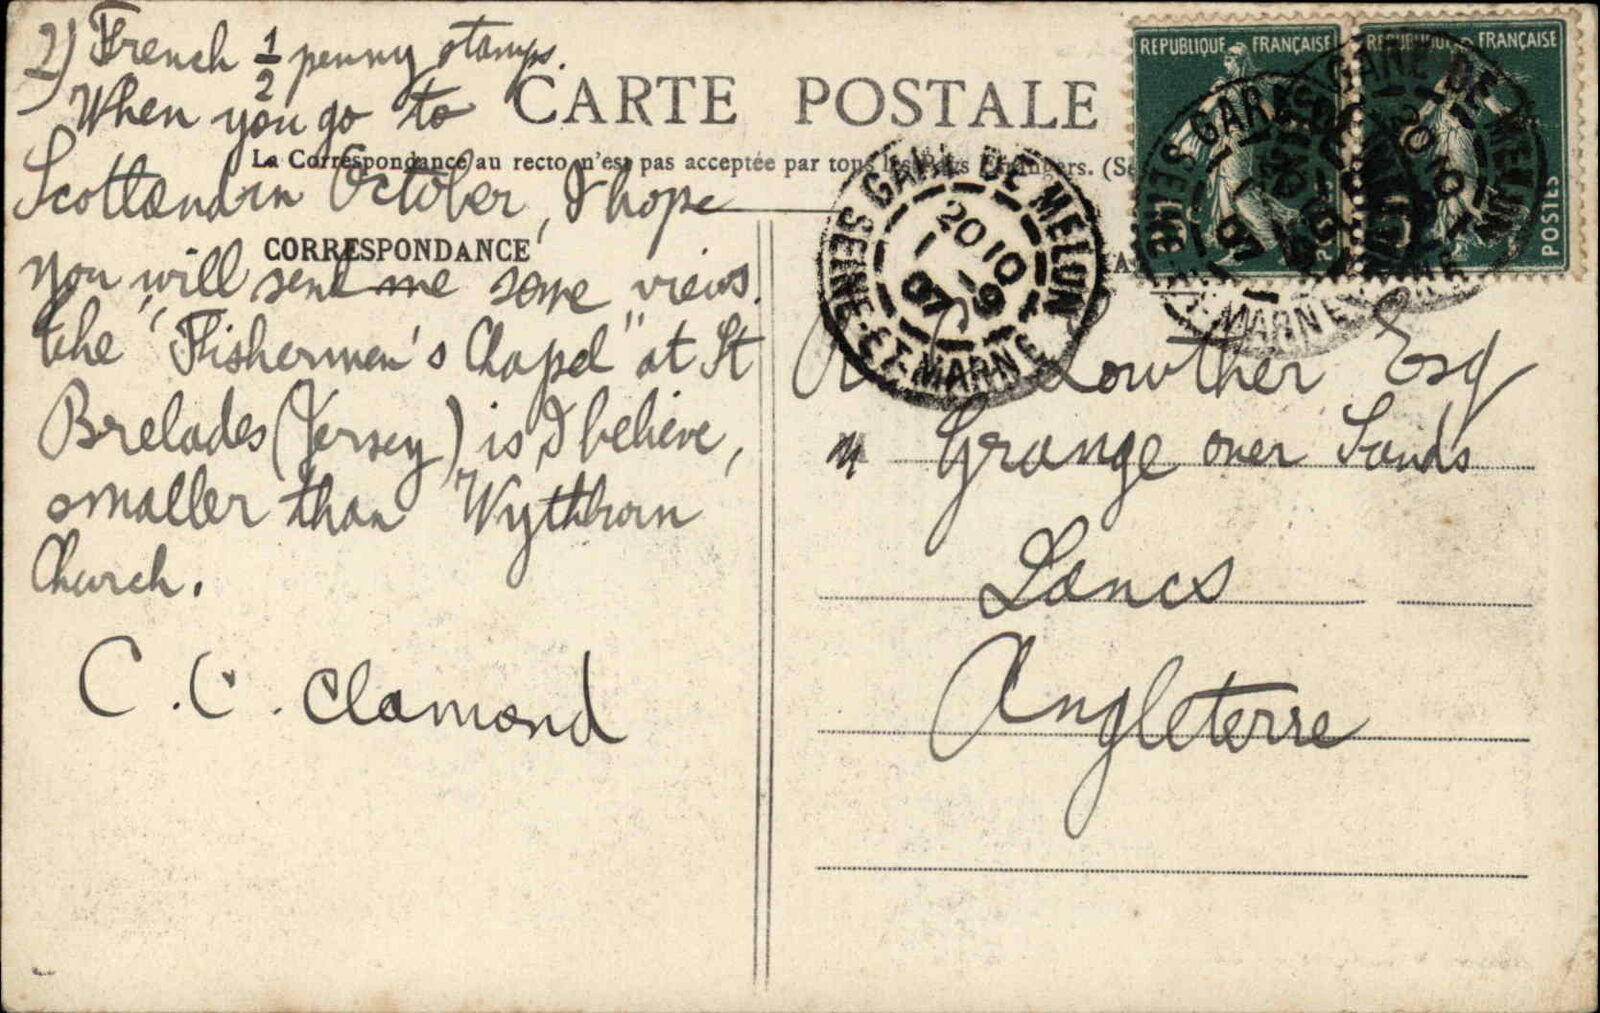 2) French 1/2 penny stamps.
When you go to
Scotland in October, I hope
you will send me some views.
the "Fishermen's Chapel" at St
Brelades (Jersey) is, I believe,
smaller than Wythburn
Church.
C. C. Clamond
CARTE POSTALE
La Correspondance au recto n'est pas acceptée par tous les Pays Etrangers. (Se
CORRESPONDANCE
REPUBLIQUE FRANÇAISE
POSTES
REPUBLIQUE FRANÇAISE
POSTES
GARE DE MELUN
SEINE-ET-MARNE
20 10
1 -9
07
GARE DE MELUN
GARE DE MELUN
Lowther Esq
Grange over Sands
Lancs
Angleterre